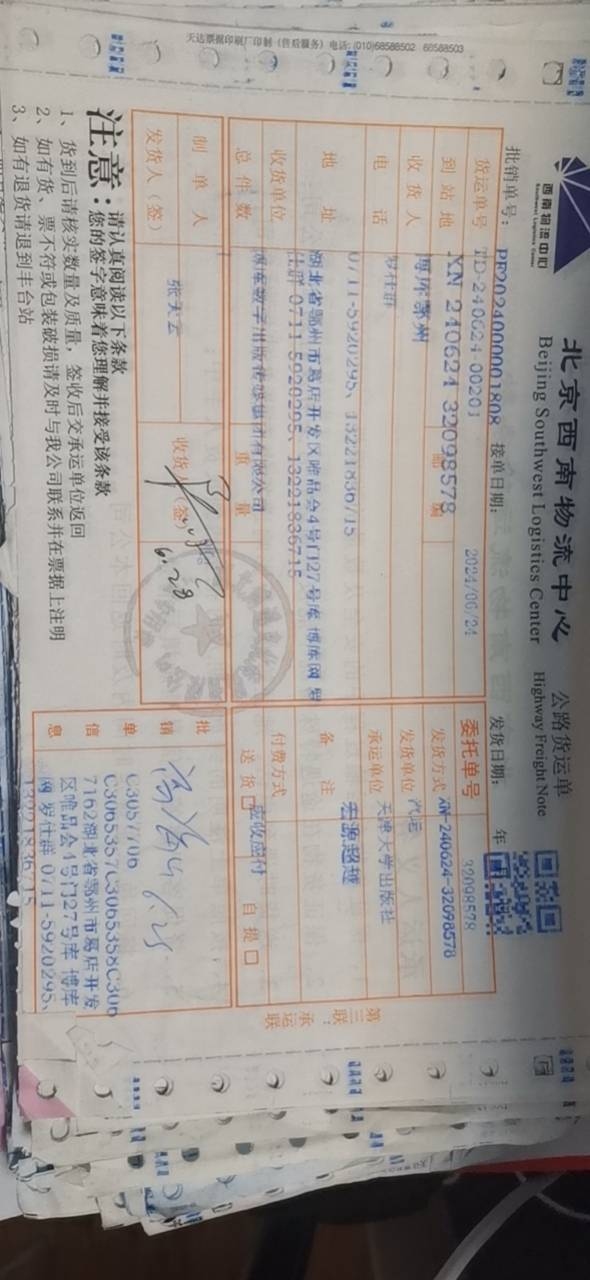 天达票据印刷厂印制（售后服务）电话：(010)68588502 68588503
西南物流中心
Southwest Logistics Center
北京西南物流中心
Beijing Southwest Logistics Center
公路货运单
Highway Freight Note
批销单号：PF2024000001808 接单日期：2024/06/24 发货日期： 年
货运单号 TD-240624-00201 委托单号 32098578
到站地 XN-240624-32098578 邮编 发货方式 XN-240624-32098578
博库鄂州
收货人 罗仕群 发货单位 汽运
电话 0711-5920295、13221836715 承运单位 天津大学出版社
地址 湖北省鄂州市葛店开发区唯品会4号门27号库 博库网 罗
仕群 0711-5920295、13221836715
备注 宏源超越
收货单位 博库数字出版传媒集团有限公司 付费方式 应收应付
总件数 重量 送货 自提
制单人 张天云 收货人（签）
6.28
发货人（签）
批销单信息
C3057706
C3065387C3065388C306
7162湖北省鄂州市葛店开发
区唯品会4号门27号库 博库
网 罗仕群 0711-5920295、
13221836715
第三联：承运联
注意：请认真阅读以下条款
您的签字意味着您理解并接受该条款
1、货到后请核实数量及质量，签收后交承运单位返回
2、如有货、票不符或包装破损请及时与我公司联系并在票据上注明
3、如有退货请退到丰台站